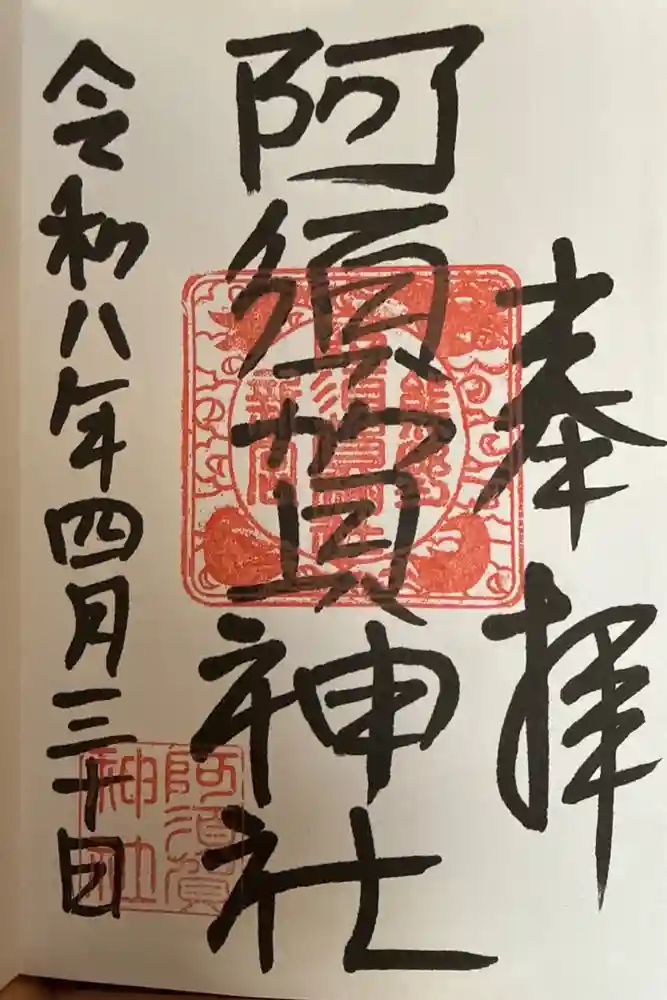 奉拝
阿須賀神社
令和八年四月三十日
阿須賀
神社